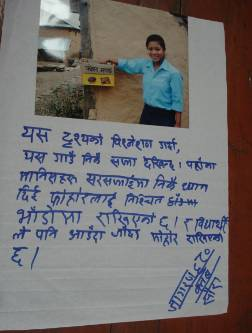 यस दृश्यको विश्लेषण गर्दा,
यस गाउँ निकै सफा देखिन्छ। यहाँका
मानिसहरु सरसफाईमा निकै ध्यान
दिई फोहोरलाई निश्चित
भाँडोमा राखिएको छ। र विद्यार्थी
ले पनि आउँदा जाँदा फोहोर राखिएको
छ।